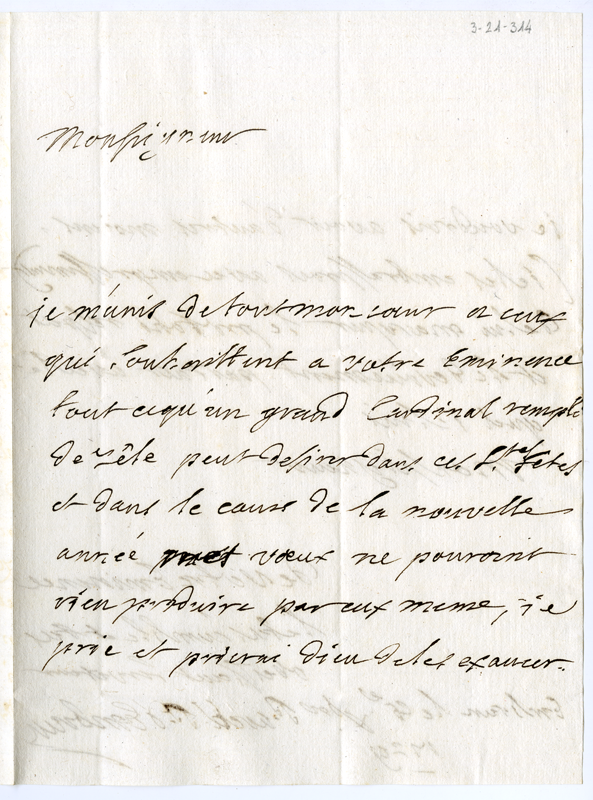 3-21-314
Monseigneur
je m'unis de tout mon cœur a ceux
qui souhaittent a votre Eminence
tout ce qu'un grand Cardinal rempli
de zêle peut desirer dans ces Stes fêtes
et dans le cours de la nouvelle
année mes vœux ne pouroint
rien produire par eux meme, je
prie et prierai dieu de les exaucer.